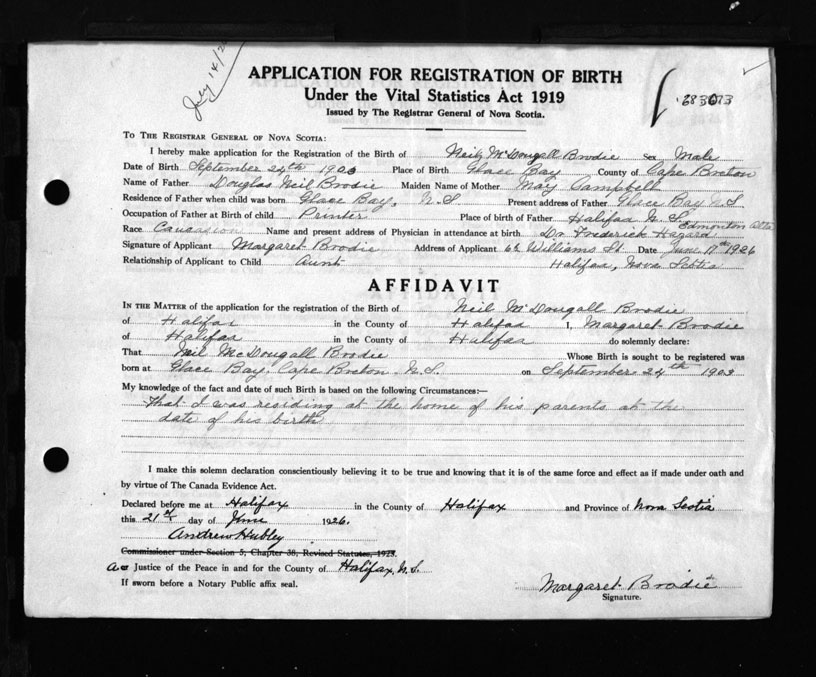 July 14/26
APPLICATION FOR REGISTRATION OF BIRTH
Under the Vital Statistics Act 1919
Issued by The Registrar General of Nova Scotia.
TO THE REGISTRAR GENERAL OF NOVA SCOTIA:
I hereby make application for the Registration of the Birth of Neil McDougall Brodie Sex Male
Date of Birth September 24th 1903 Place of Birth Glace Bay County of Cape Breton
Name of Father Douglas Neil Brodie Maiden Name of Mother May Campbell
Residence of Father when child was born Glace Bay, N.S. Present address of Father Glace Bay N.S
Occupation of Father at Birth of child Printer Place of birth of Father Halifax N.S.
Race Caucasion Name and present address of Physician in attendance at birth Dr. Frederick Hazard Edmonton Alta
Signature of Applicant Margaret Brodie Address of Applicant Williams St. Date June 17th 1926
Relationship of Applicant to Child Aunt Halifax, Nova Scotia
AFFIDAVIT
IN THE MATTER of the application for the registration of the Birth of Neil McDougall Brodie
of Halifax in the County of Halifax I, Margaret Brodie
of Halifax in the County of Halifax do solemnly declare:
That Neil McDougall Brodie Whose Birth is sought to be registered was
born at Glace Bay, Cape Breton N.S. on September 24th 1903
My knowledge of the fact and date of such Birth is based on the following Circumstances:—
That I was residing at the home of his parents at the
date of his birth
I make this solemn declaration conscientiously believing it to be true and knowing that it is of the same force and effect as if made under oath and
by virtue of The Canada Evidence Act.
Declared before me at Halifax in the County of Halifax and Province of Nova Scotia
this 21st day of June 1926.
Andrew Hubley
Commissioner under Section 5, Chapter 38, Revised Statutes, 1923.
A Justice of the Peace in and for the County of Halifax, N.S.
If sworn before a Notary Public affix seal.
Margaret Brodie
Signature.